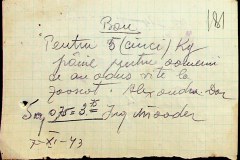 181
Bon
Pentru 5 (cinci) kg
pâine pentru oameni
ce au adus vite la
Alexandru
5 kg 0.75 = 3.75 Ing
X-XI-43